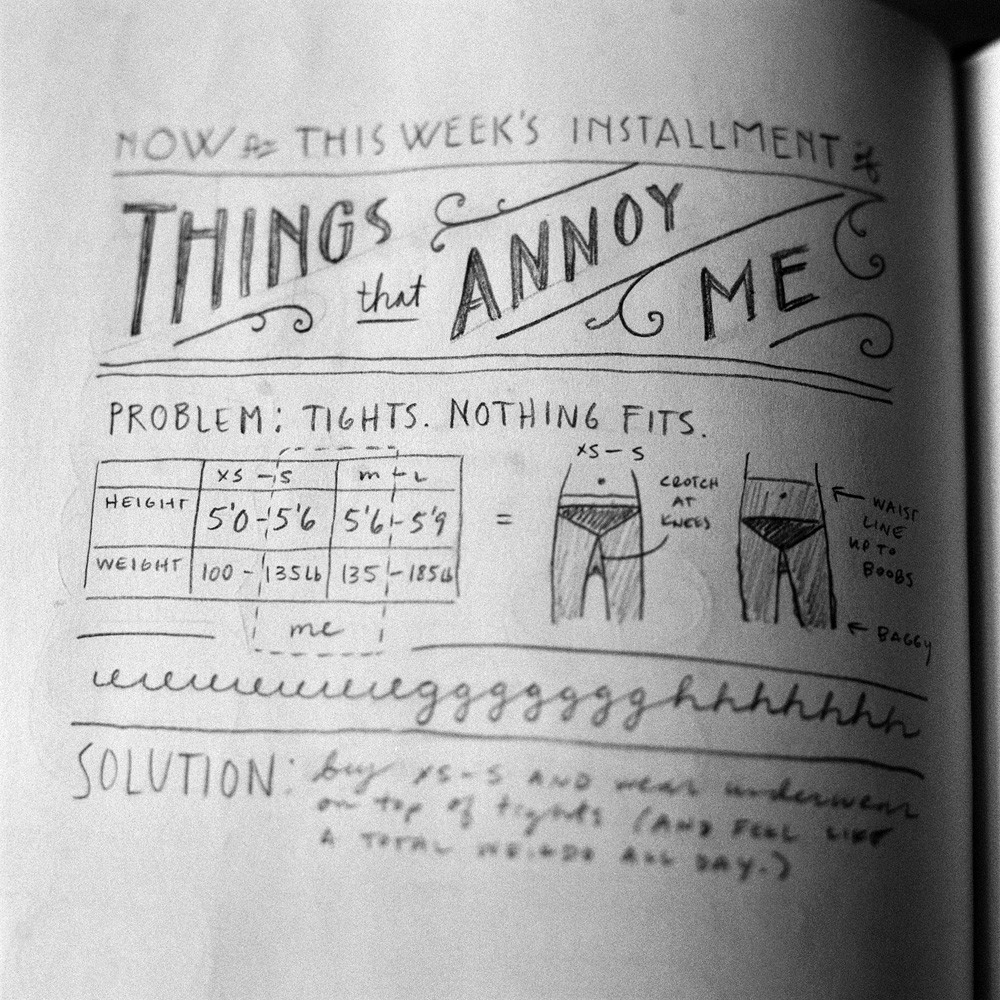 NOW for THIS WEEK'S INSTALLMENT of
THINGS that ANNOY ME
PROBLEM: TIGHTS. NOTHING FITS.
XS - S M - L
HEIGHT 5'0 - 5'6 5'6 - 5'9
WEIGHT 100 - 135LB 135 - 185LB
me
=
XS - S
CROTCH
AT
KNEES
WAIST
LINE
UP TO
BOOBS
BAGGY
uuuuuuuuugggggggghhhhhhhh
SOLUTION: buy XS-S AND wear underwear
on top of tights (AND FEEL LIKE
A TOTAL WEIRDO ALL DAY.)